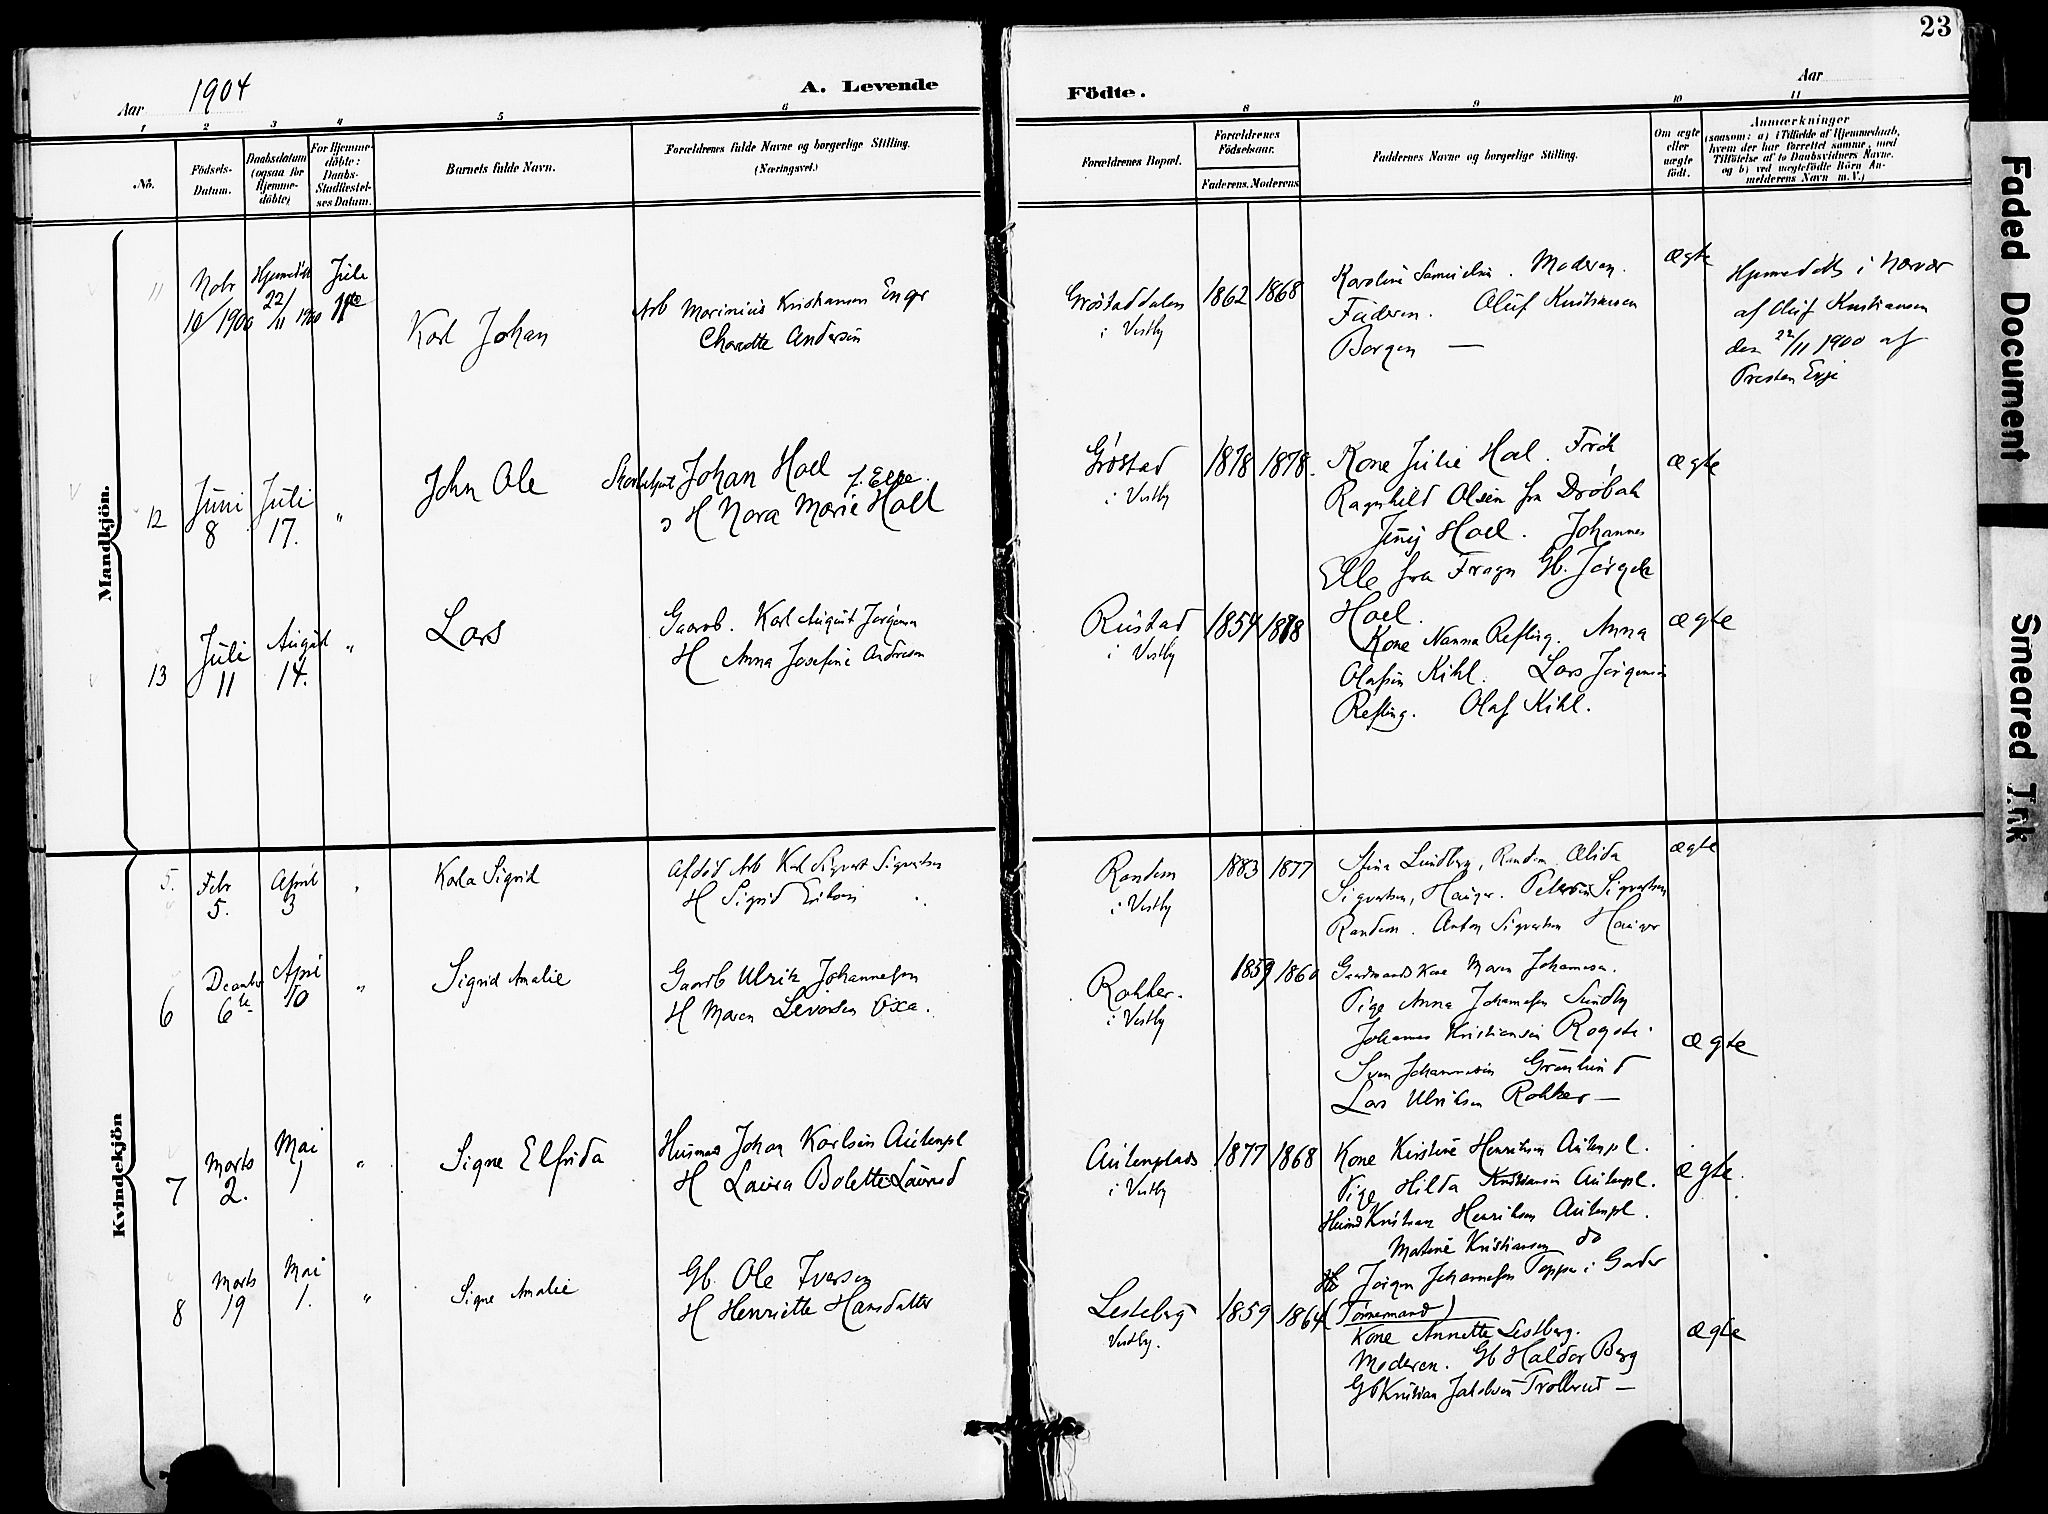 23
Aar 1904
A. Levende
Födte.
Aar
1 2 3 4 5 6 8 9 10 11
No.
Födsels-
Datum.
Daabsdatum
(ogsaa for
Hjemme-
döbte)
For Hjemme-
döbte:
Daabs-
Stadfæstel-
ses Datum.
Barnets fulde Navn.
Forældrenes fulde Navne og borgerlige Stilling.
(Næringsvei.)
Forældrenes Bopæl.
Forældrenes
Födselsaar.
Faderens. Moderens
Faddernes Navne og borgerlige Stilling.
Om ægte
eller
uægte
födt.
Anmærkninger
(saasom: a) i Tilfælde af Hjemmedaab,
hvem der har forrettet samme, med
Tilföielse af to Daabsvidners Navne.
og b) ved uægtefödte Börn An-
melderens Navn m. V.)
Mandkjön.
11
Nobr
10/1900
22/11 1900
Karl Johan
Arb Marinius Kristiansen Enger
Andersen
Grøstaddalen
i Vestby
1862 1868
Karoline Samuelsen. Moderen.
Faderen. Oluf Kristiansen
Borgen —
ægte
Hjemmedøbt i
af Oluf Kristiansen
den 22/11 1900 af
Presten
12
Juni
8
Juli
17.
"
John Ole
Johan Hoel
H Nora Marie Hoel
Grøstad
i Vestby
1878 1878.
Kone Julie Hoel. Frök
Ragnhild Olsen fra Drøbak
Jenny Hoel. Johannes
Elle fra Frogn Gb. Jørgen
Hoel.
ægte
13
Juli
11
August
14.
"
Lars
Gaarb. Karl August Jørgensen
H Anna Josefine Andresen
Rustad
i Vestby
1854 1878
Kone Nanna Refling. Anna
Olafsen Kihl. Lars Jørgensen
Refling. Olaf Kihl.
ægte
Kvindekjön
5.
Febr
5.
April
3
"
Karla Sigrid
Afdød Arb Karl Sigvart Sigvartsen
H Sigrid Eriksen
Randem
i Vestby
1883 1877
Stina Lundberg, Randem. Alida
Sigvartsen, Hauger. Sigvartsen
Randem. Anton Sigvartsen Hauger
ægte
6
Decenber
6te
April
10
"
Sigrid Amalie
Gaarb Ulrik Johannesen
H Maren Levorsen Oxa.
Rokker.
i Vestby
1859 1860
Gaardmands Kone Maren Johannesen.
Pige Anna Johannesen Sundby
Johannes Kristiansen
Sven Johannesen Grønlund
Lars Ulriksen Rokker —
ægte
7
Marts
2.
Mai
1
"
Signe Elfrida
Husmand Johan Karlsen Autenpl
H Laura Bolette
Autenplads
i Vestby
1877 1868
Kone Kirstine Henriksen Autenpl.
Pige Hilda Kristiansen Autenpl.
Kristian Henriksen Autenpl.
Martine Kristiansen do
Jørgen Johannesen Teppen i Garder
(Tømmermand)
ægte.
8
Marts
19
Mai
1.
"
Signe Amalie
Gb. Ole Iversen
H Henriette Hansdatter
Lesteberg
Vestby.
1859 1864
Kone Annette Lestberg.
Moderen. Gb Haldor Berg
Gb Kristian Jakobsen Trollerud —
ægte
Faded Document
Smeared Ink